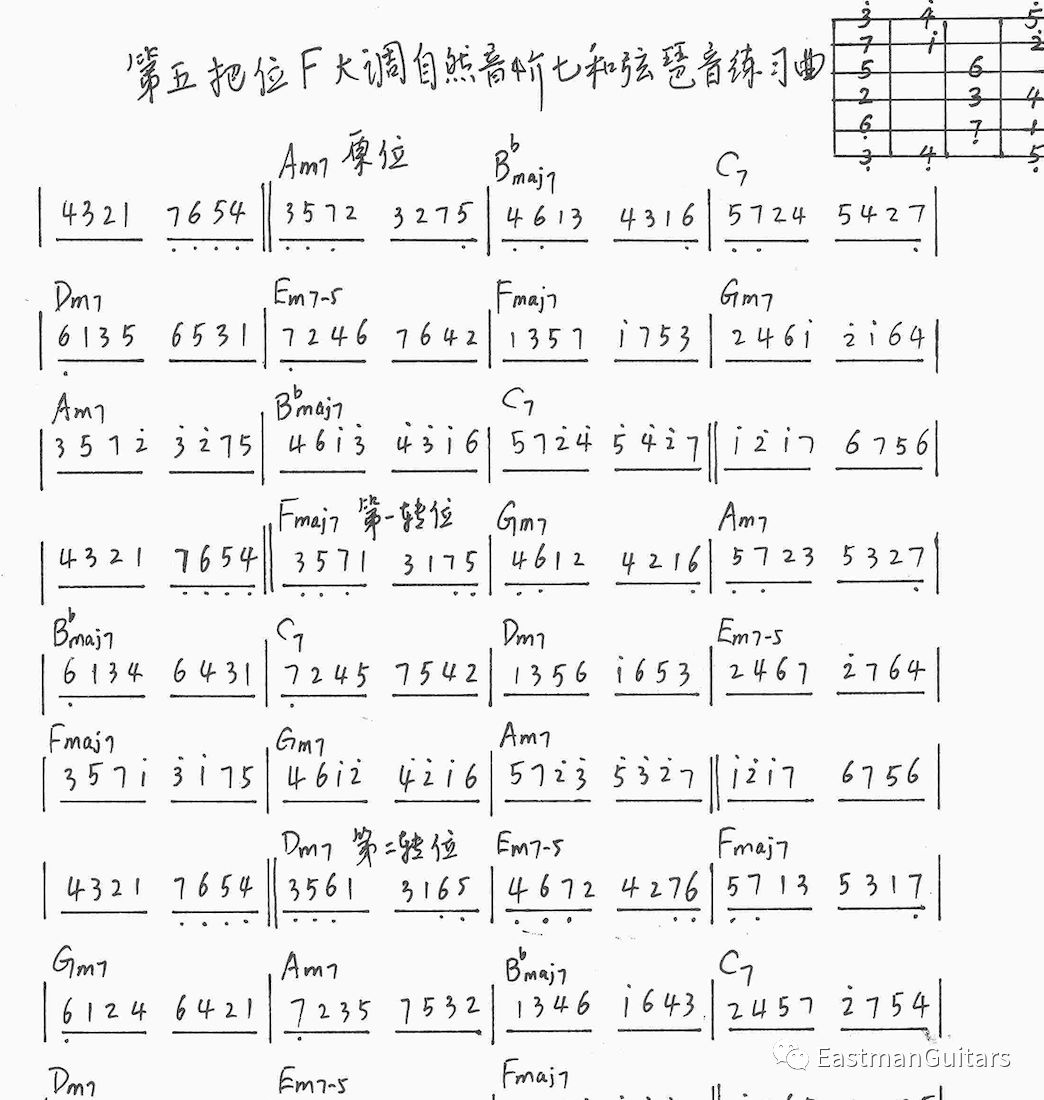 第五把位F大调自然音阶七和弦琶音练习曲
3 4 5
7 i 2
5 6
2 3 4
6 7 1
3 4 5
Am7 原位 B♭maj7 C7
| 4321 7654 || 3572 3275 | 4613 4316 | 5724 5427 |
Dm7 Em7-5 Fmaj7 Gm7
| 6135 6531 | 7246 7642 | 1357 i753 | 246i 2̇i64 |
Am7 B♭maj7 C7
| 3572̇ 3̇2̇75 | 46i3̇ 4̇3̇i6 | 572̇4̇ 5̇4̇2̇7 || i2̇i7 6756 |
Fmaj7 第一转位 Gm7 Am7
| 4321 7654 || 3571 3175 | 4612 4216 | 5723 5327 |
B♭maj7 C7 Dm7 Em7-5
| 6134 6431 | 7245 7542 | 1356 i653 | 2467 2̇764 |
Fmaj7 Gm7 Am7
| 357i 3̇i75 | 46i2̇ 4̇2̇i6 | 572̇3̇ 5̇3̇2̇7 || i2̇i7 6756 |
Dm7 第二转位 Em7-5 Fmaj7
| 4321 7654 || 3561 3165 | 4672 4276 | 5713 5317 |
Gm7 Am7 B♭maj7 C7
| 6124 6421 | 7235 7532 | 1346 i643 | 2457 2̇754 |
EastmanGuitars
Dm7 Em7-5 Fmaj7